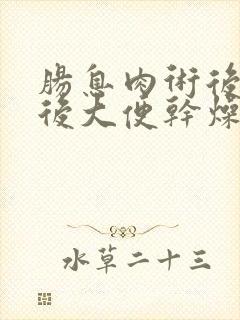 腸息肉術後
後大便幹燥
水草二十三